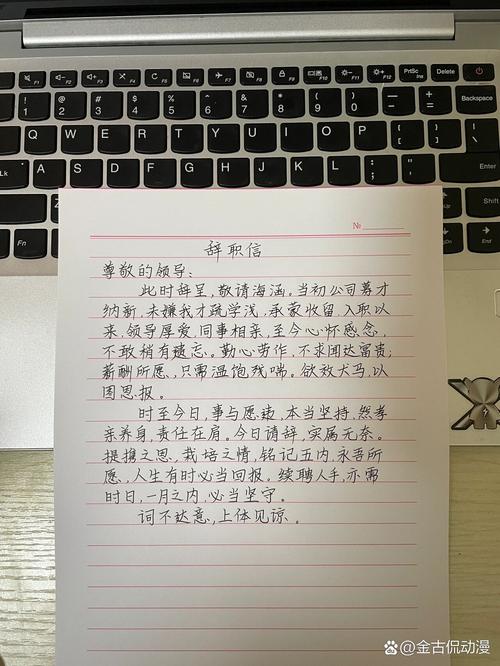 PrtSc Delete
F1 F2 F3 F4 F5 F6 F7 F8 F9 F10 F11 F12
! @ # $ % ^ & * ( ) +
1 2 3 4 5 6 7 8 9 0 - = Backspace
Q W E R T Y U I O P { [ } ]
A S D F G H J K L : ; " ' Enter
Shift
Ctrl
№
辞职信
尊敬的领导：
此时辞呈，敬请海涵。当初公司募才
纳新，未嫌我才疏学浅，承蒙收留，入职以
来，领导厚爱，同事相亲，至今心怀感念，
不敢稍有遗忘。勤心劳作，不求闻达富贵；
薪酬所愿，只需温饱残喘。欲效犬马，以
图恩报。
时至今日，事与愿违，本当坚持，然孝
亲养身，责任在肩。今日请辞，实属无奈。
提携之恩，栽培之情，铭记五内，永吾所
愿，人生有时必当回报。续聘人手，亦需
时日，一月之内，必当坚守。
词不达意，上体见谅。
@金古侃动漫